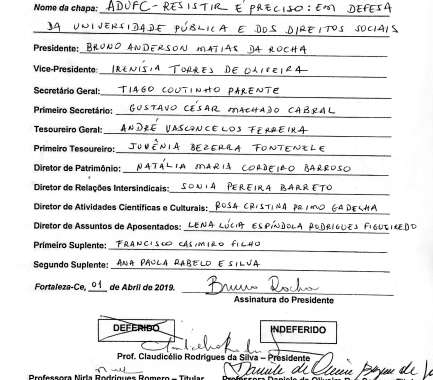 Nome da chapa: ADUFC-RESISTIR É PRECISO: EM DEFESA
DA UNIVERSIDADE PÚBLICA E DOS DIREITOS SOCIAIS
Presidente: BRUNO ANDERSON MATIAS DA ROCHA
Vice-Presidente: IRENÍSIA TORRES DE OLIVEIRA
Secretário Geral: TIAGO COUTINHO PARENTE
Primeiro Secretário: GUSTAVO CÉSAR MACHADO CABRAL
Tesoureiro Geral: ANDRÉ VASCONCELOS FERREIRA
Primeiro Tesoureiro: JUVÊNIA BEZERRA FONTENELE
Diretor de Patrimônio: NATÁLIA MARIA CORDEIRO BARROSO
Diretor de Relações Intersindicais: SONIA PEREIRA BARRETO
Diretor de Atividades Científicas e Culturais: ROSA CRISTINA PRIMO GADELHA
Diretor de Assuntos de Aposentados: LENA LÚCIA ESPÍNDOLA RODRIGUES FIGUEIREDO
Primeiro Suplente: FRANCISCO CASIMIRO FILHO
Segundo Suplente: ANA PAULA RABELO E SILVA
Fortaleza-Ce, 01 de Abril de 2019. Bruno Rocha
Assinatura do Presidente
DEFERIDO INDEFERIDO
Prof. Claudicélio Rodrigues da Silva – Presidente
Professora Nirla Rodrigues Romero – Titular Professora Daniele de